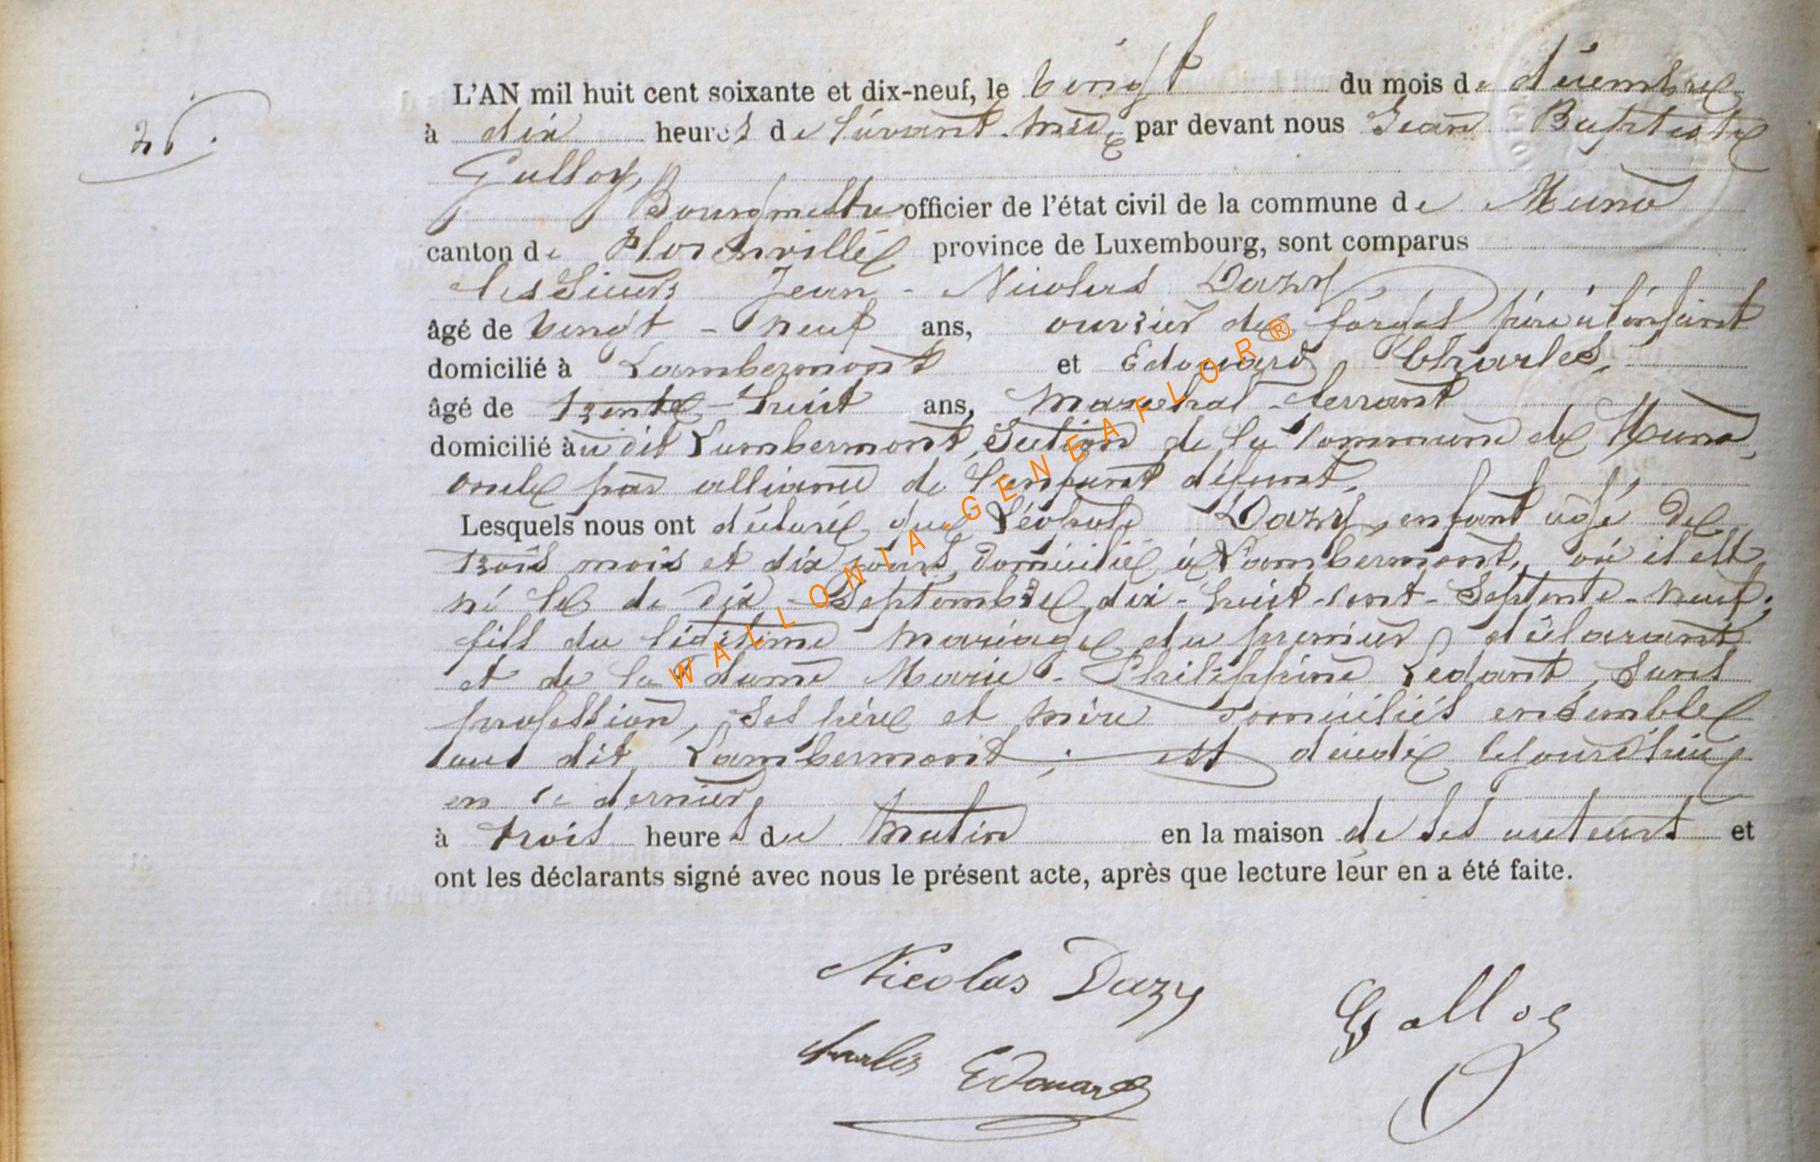 L'AN mil huit cent soixante et dix-neuf, le vingt du mois de décembre
26.
à dix heures de l'avant-midi, par devant nous Jean Baptiste
Galloy,
Bourgmestre officier de l'état civil de la commune de Muno
canton de Florenville province de Luxembourg, sont comparus
les Sieurs Jean-Nicolas Dazy
âgé de vingt-neuf ans, ouvrier de forges père à l'enfant
domicilié à Lambermont et Edouard Charles,
âgé de trente-huit ans, maréchal-ferrant
domicilié au dit Lambermont, Section de la Commune de Muno,
oncle par alliance de l'enfant défunt.
Lesquels nous ont déclaré que Léopold Dazy, enfant âgé de
trois mois et dix jours, domicilié à Lambermont, où il est
né le de dix Septembre, dix-huit-cent-Septente-neuf;
fils du légitime mariage du premier déclarant
et de la dame Marie-Philippine Ledant, Sans
profession, Ses père et mère domiciliés ensemble
au dit Lambermont; est décédé cejourd'hui
en ce dernier,
à trois heures du matin en la maison de ses auteurs et
ont les déclarants signé avec nous le présent acte, après que lecture leur en a été faite.
Nicolas Dazy
Galloy
Charles Edouard
WALLONIA-GENEAFLOR®